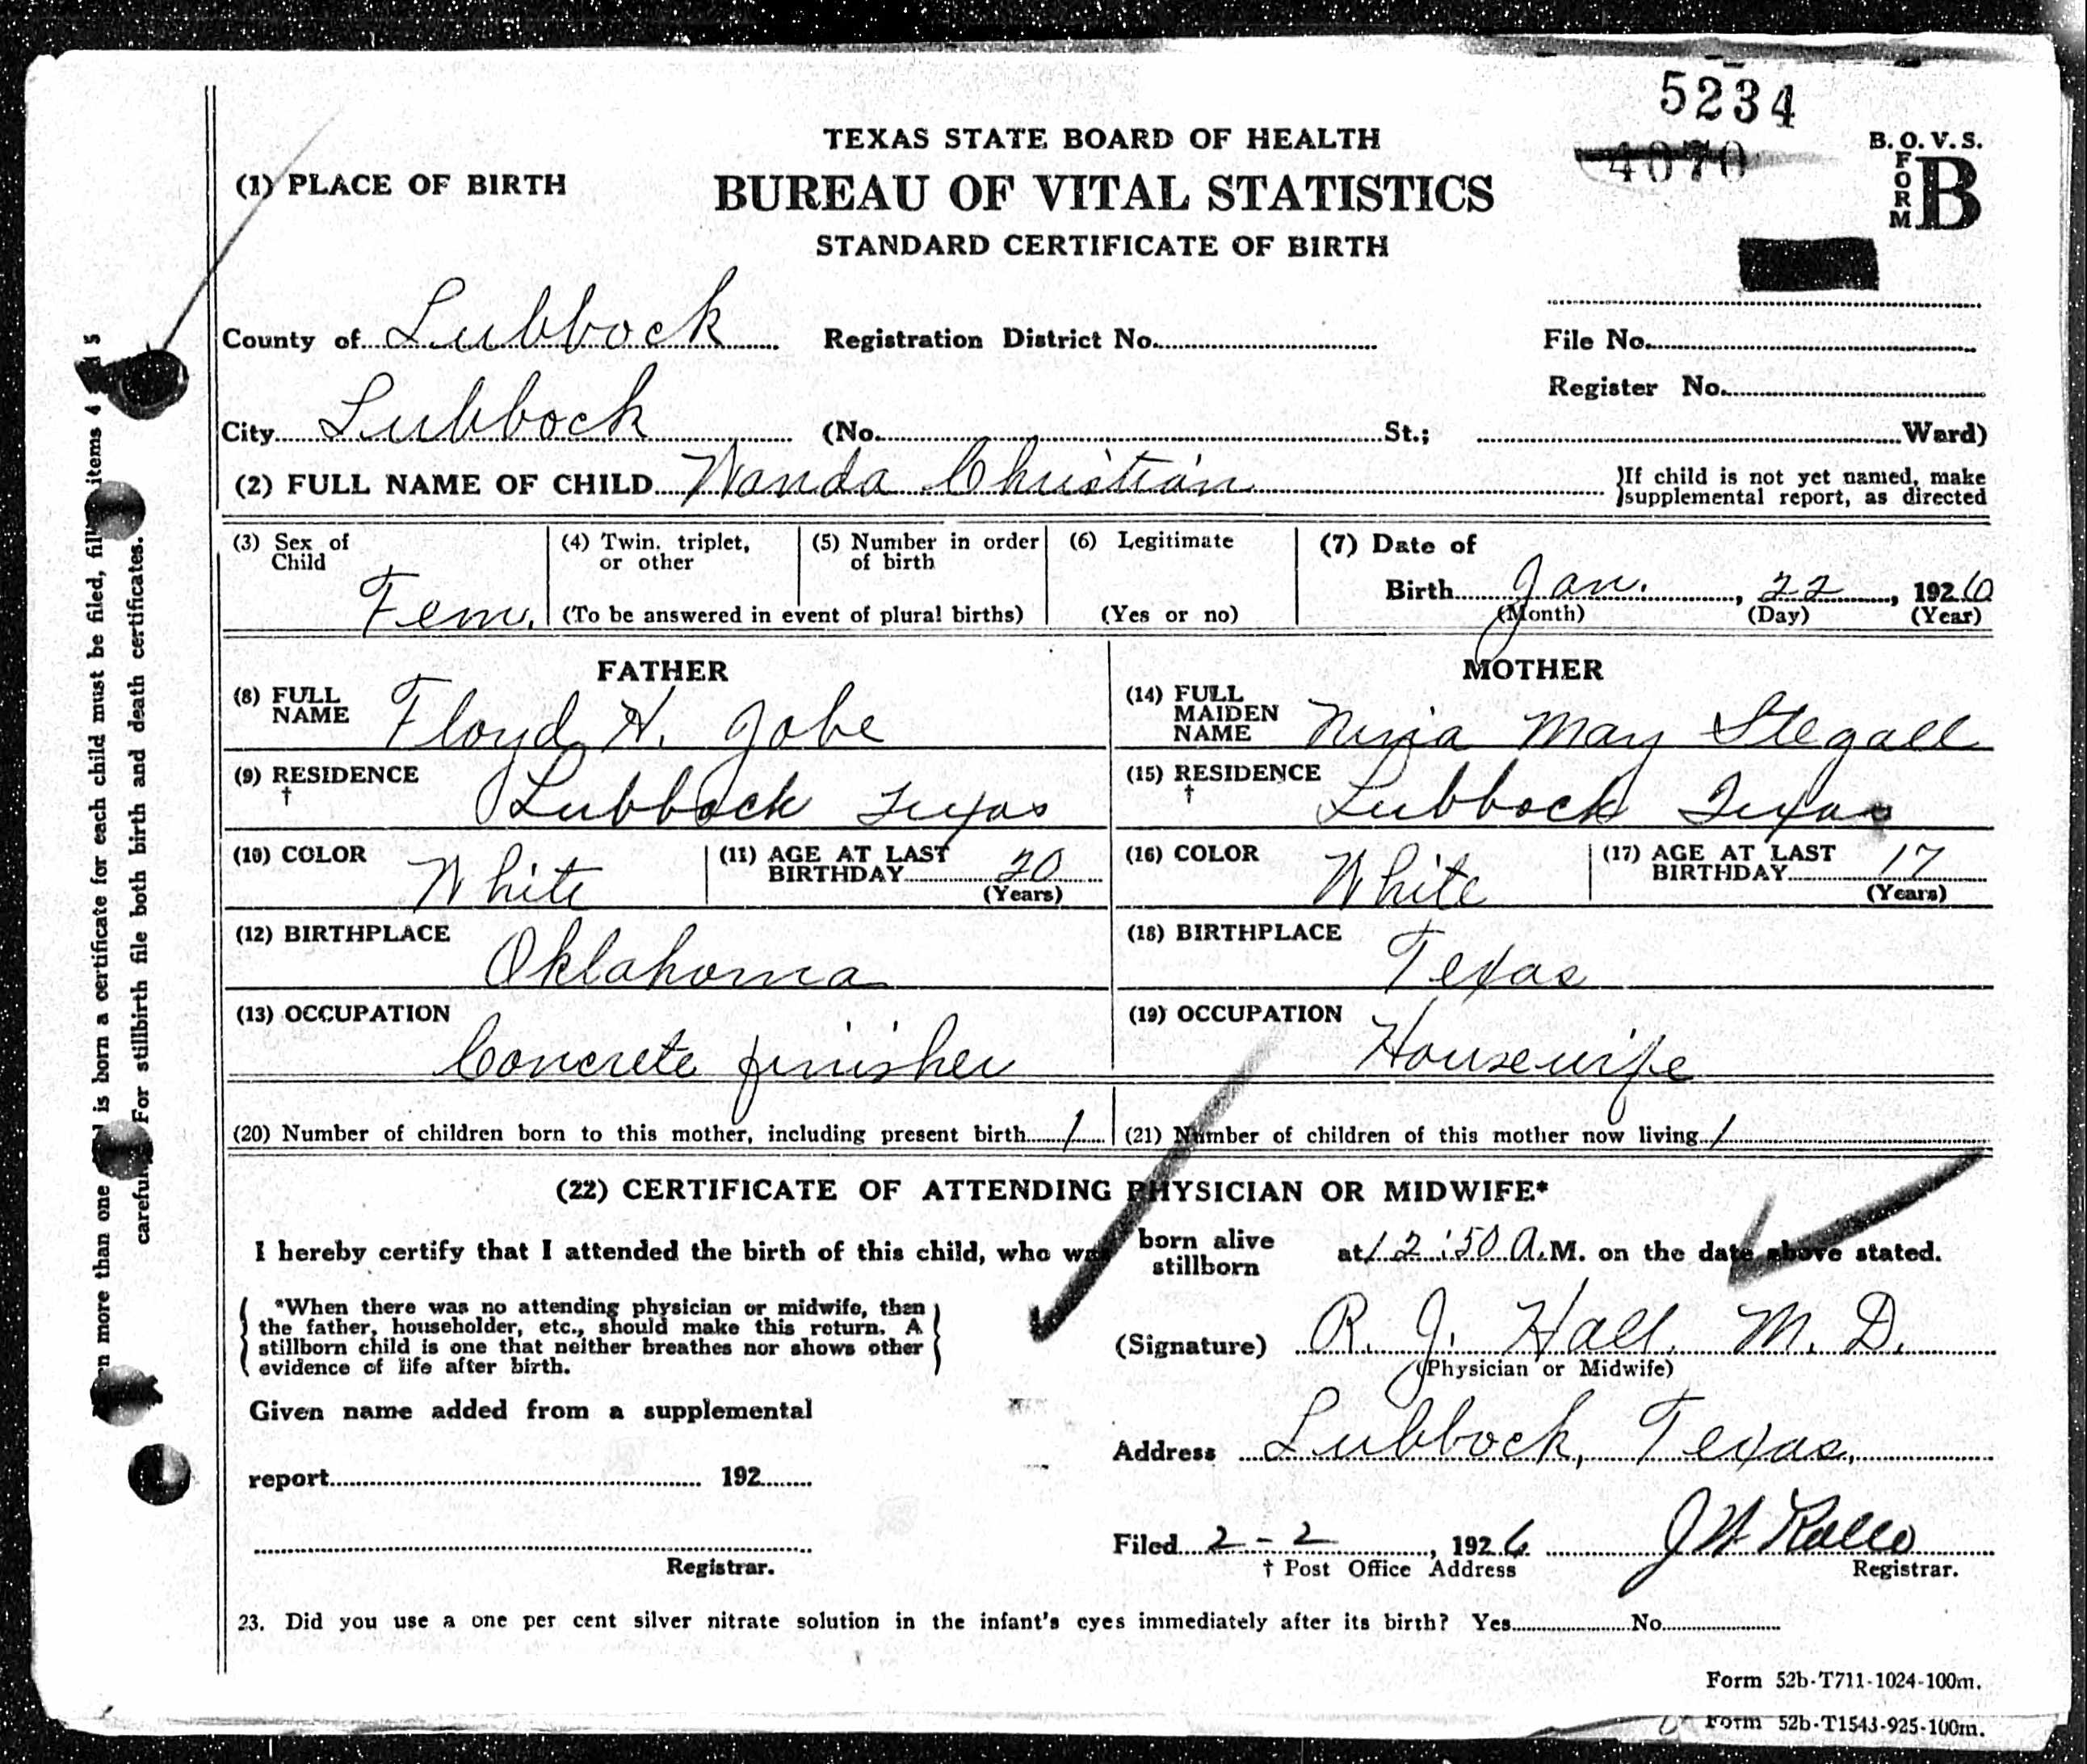 5234
TEXAS STATE BOARD OF HEALTH
4070
B. O. V. S.
FORM B
(1) PLACE OF BIRTH
BUREAU OF VITAL STATISTICS
STANDARD CERTIFICATE OF BIRTH
County of Lubbock Registration District No. File No.
Register No.
City Lubbock (No. St.; Ward)
(2) FULL NAME OF CHILD Wanda Christian }If child is not yet named, make
}supplemental report, as directed
(3) Sex of Child Fem.
(4) Twin, triplet, or other
(5) Number in order of birth
(To be answered in event of plural births)
(6) Legitimate
(Yes or no)
(7) Date of
Birth Jan. , 22 , 1926
(Month) (Day) (Year)
FATHER
(8) FULL NAME Floyd H. Jobe
(9) RESIDENCE † Lubbock Texas
(10) COLOR White (11) AGE AT LAST BIRTHDAY 20 (Years)
(12) BIRTHPLACE Oklahoma
(13) OCCUPATION Concrete finisher
MOTHER
(14) FULL MAIDEN NAME Nina May Stegall
(15) RESIDENCE † Lubbock Texas
(16) COLOR White (17) AGE AT LAST BIRTHDAY 17 (Years)
(18) BIRTHPLACE Texas
(19) OCCUPATION Housewife
(20) Number of children born to this mother, including present birth 1 (21) Number of children of this mother now living 1
(22) CERTIFICATE OF ATTENDING PHYSICIAN OR MIDWIFE*
I hereby certify that I attended the birth of this child, who was born alive stillborn at 12:50 A.M. on the date above stated.
*When there was no attending physician or midwife, then
the father, householder, etc., should make this return. A
stillborn child is one that neither breathes nor shows other
evidence of life after birth.
(Signature) R. J. Hall. M. D.
(Physician or Midwife)
Given name added from a supplemental
Address Lubbock, Texas,
report 192
Filed 2-2 , 1926
† Post Office Address Registrar.
Registrar.
23. Did you use a one per cent silver nitrate solution in the infant's eyes immediately after its birth? Yes No
Form 52b-T711-1024-100m.
Form 52b-T1543-925-100m.
n more than one is born a certificate for each child must be filed, items 4 5
For stillbirth file both birth and death certificates.